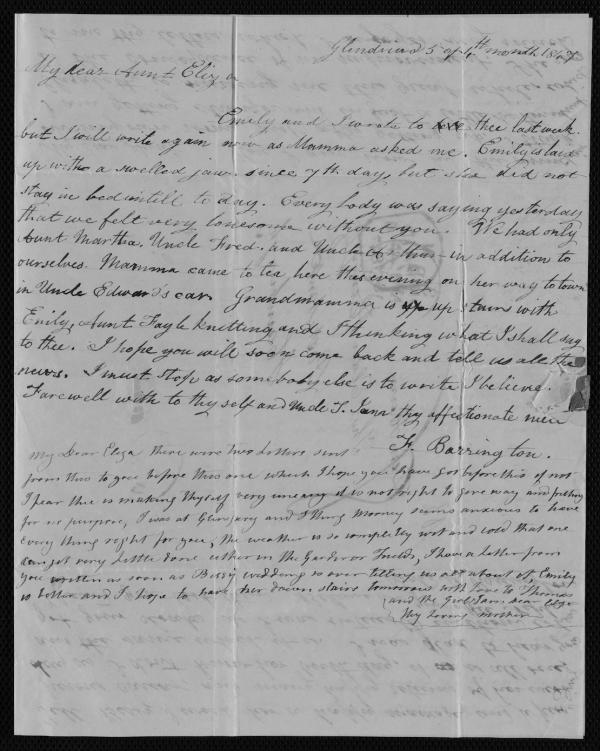 Glendruid 5 of 4th month 1847
My dear Aunt Eliza
Emily and I wrote to thee last week
but I will write again now as Mamma asked me. Emily is laid
up with a swelled jaw since 7th day, but she did not
stay in bed intill to day. Every body was saying yesterday
that we felt very lonesome without you. We had only
Aunt Martha, Uncle Fred. and Uncle Arthur in addition to
ourselves. Mamma came to tea here this evening on her way to town
in Uncle Edward's car. Grandmamma is up up stairs with
Emily, Aunt Fayle knitting and I thinking what I shall say
to thee. I hope you will soon come back and tell us all the
news. I must stop as some body else is to write I believe.
Farewell with to thy self and Uncle T. I am thy affectionate niece
F. Barrington.
My Dear Eliza there were two Letters sent
from this to you before this one which I hope you have got before this if not
I fear thee is making thyself very uneasy it is not right to give way and
for no purpose, I was at Glengary and I thing Morney seems anxious to have
every thing right for you, the weather is so completely wet and cold that one
can get very little done either in the Garden or Fields, I have a letter from
you written as soon as Bessy wedding is over telling us all about it, Emily
is better and I hope to have her down stairs tomorrow with love to Thomas
and the Girls I am dear Eliza
thy loving mother